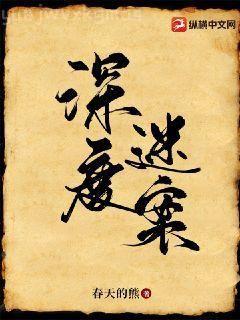 纵横中文网
深度
迷案
春天的熊 著